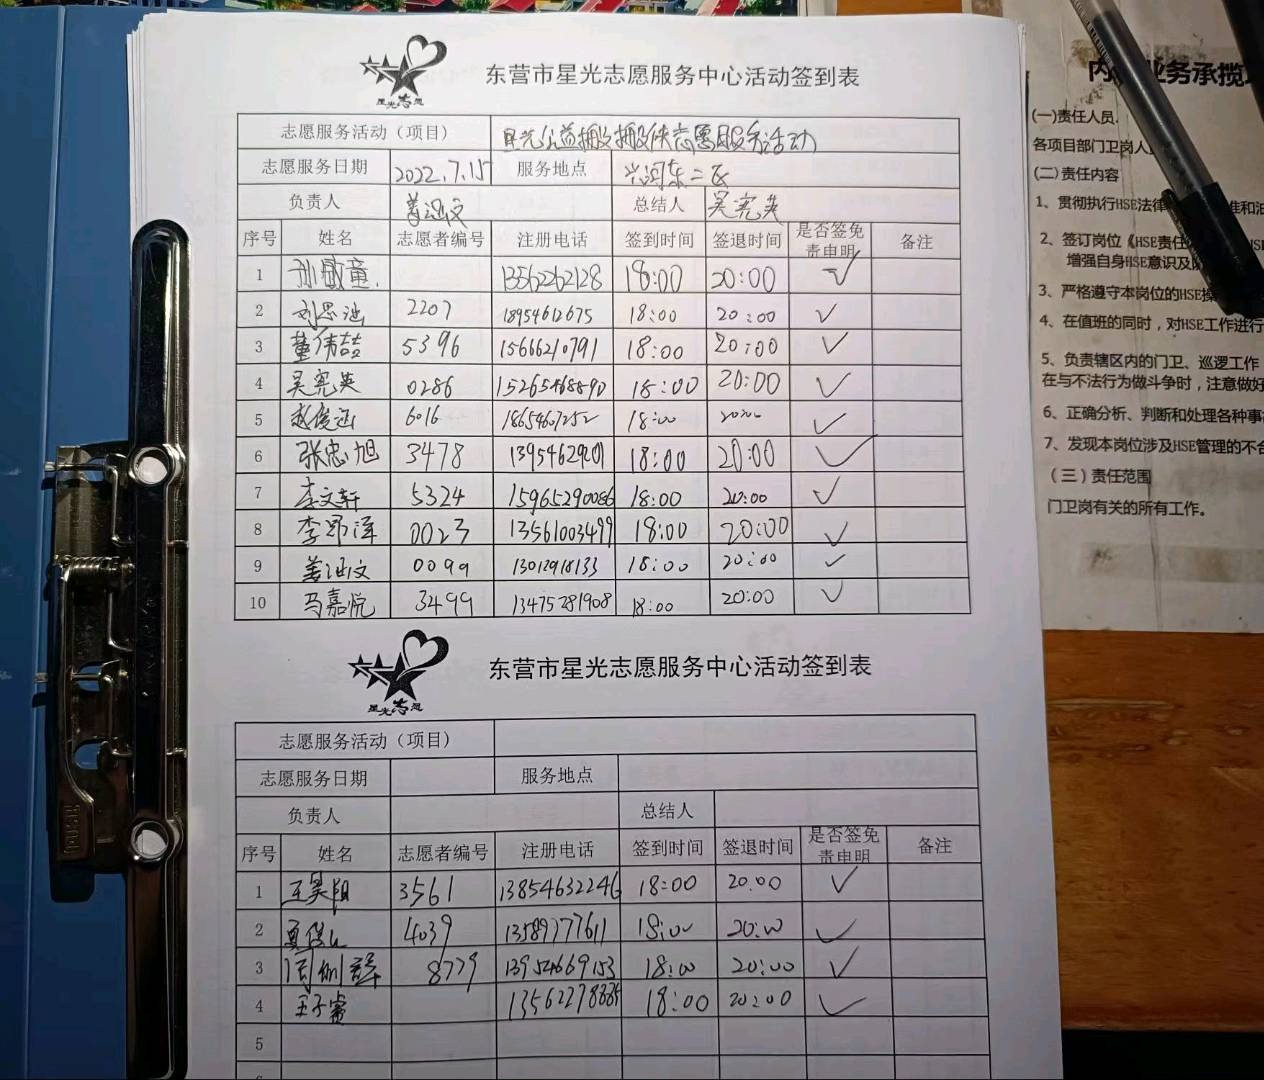 东营市星光志愿服务中心活动签到表
星光志愿
志愿服务活动（项目） 星光公益搬搬侠志愿服务活动
志愿服务日期 2022.7.15 服务地点 兴河东二区
负责人 姜涵文 总结人 吴宪英
序号 姓名 志愿者编号 注册电话 签到时间 签退时间 是否签免责申明 备注
1 孙敬童 13562262128 18:00 20:00 ✓
2 刘思池 2207 18954612675 18:00 20:00 ✓
3 董伟喆 5396 15666210791 18:00 20:00 ✓
4 吴宪英 0286 15265468890 18:00 20:00 ✓
5 赵俊涵 6016 18654607252 18:00 20:00 ✓
6 张忠旭 3478 13954629201 18:00 20:00 ✓
7 李文轩 5324 15965290086 18:00 20:00 ✓
8 李 泽 0023 13561003499 18:00 20:00 ✓
9 姜涵文 0099 13012918133 18:00 20:00 ✓
10 马嘉悦 3499 13475281908 18:00 20:00 ✓
东营市星光志愿服务中心活动签到表
星光志愿
志愿服务活动（项目）
志愿服务日期 服务地点
负责人 总结人
序号 姓名 志愿者编号 注册电话 签到时间 签退时间 是否签免责申明 备注
1 王昊阳 3561 13854632246 18:00 20:00 ✓
2 4039 13589777611 18:00 20:00 ✓
3 周 8779 13954669153 18:00 20:00 ✓
4 王子睿 18:00 20:00 ✓
5
业务承揽
(一)责任人员
各项目部门卫岗人
(二)责任内容
1、贯彻执行HSE法律 准和
2、签订岗位《HSE责任
增强自身HSE意识及
3、严格遵守本岗位的HSE
4、在值班的同时，对HSE工作进行
5、负责辖区内的门卫、巡逻工作
在与不法行为做斗争时，注意做好
6、正确分析、判断和处理各种事
7、发现本岗位涉及HSE管理的不
(三)责任范围
门卫岗有关的所有工作。
PUSH